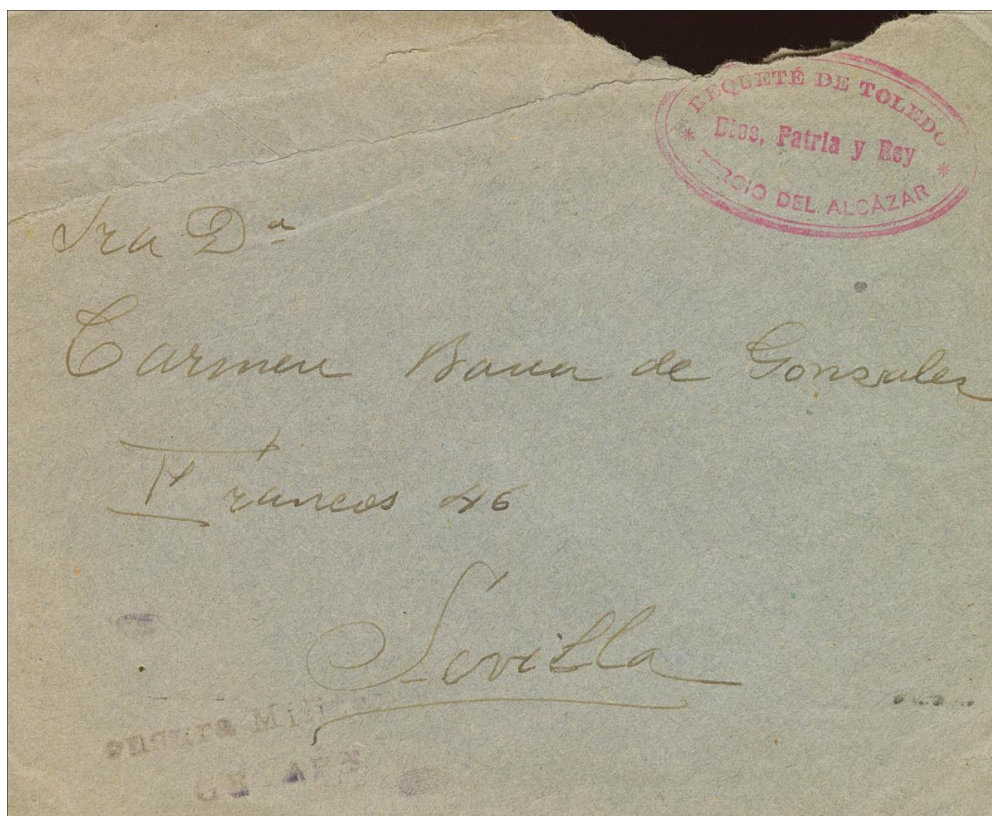 REQUETÉ DE TOLEDO
Dios, Patria y Rey
TERCIO DEL ALCÁZAR
Sra Dª
Carmen de Gonzalez
Francos 46
Sevilla
ensura